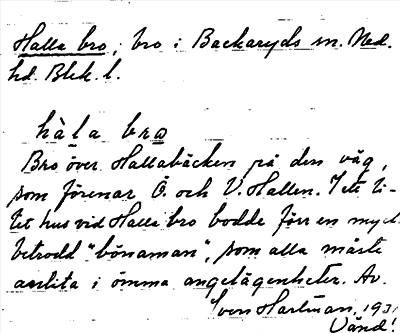 Halla bro, bro i Backaryds sn. Med.
hd. Blek. l.
hàla bro
Bro över Hallabäcken på den väg,
som förenar Ö. och V. Hallen. I ett li-
tet hus vid Halla bro bodde förr en myck.
betrodd "bönaman", som alla måste
anlita i ömma angelägenheter. Av
Sven Hartman, 1931
Vänd!